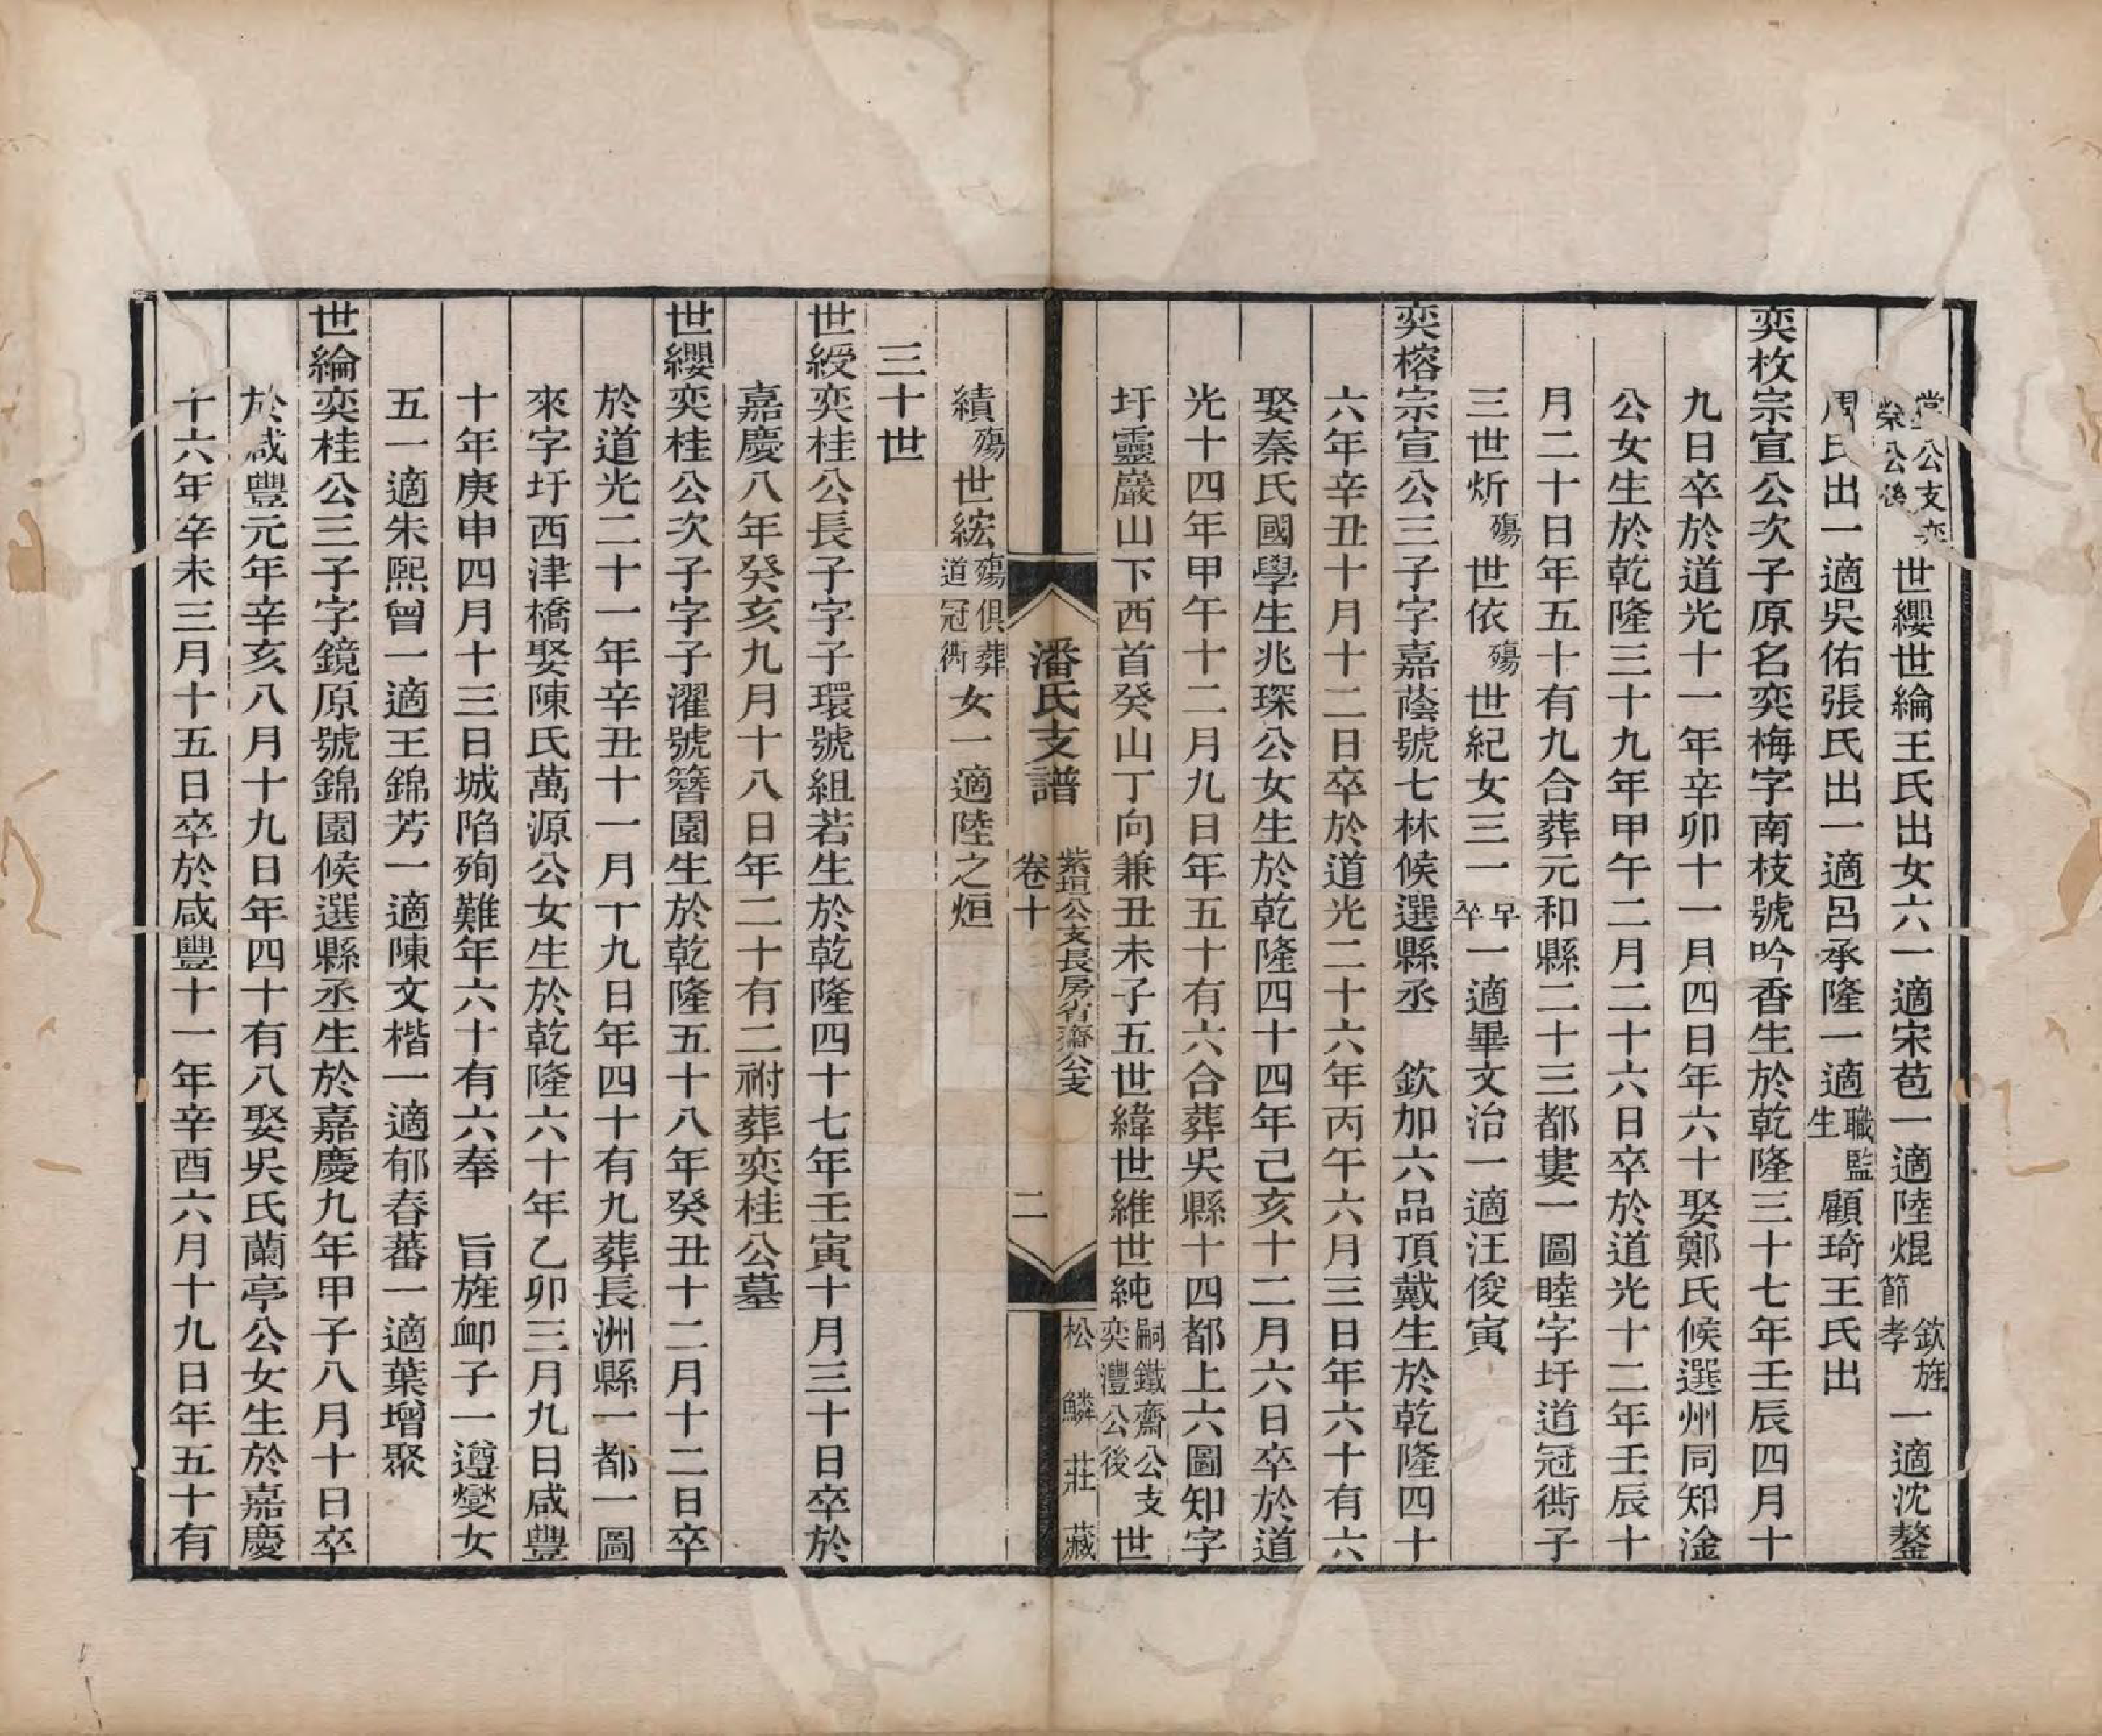 堂公支奕榮公後世纓世綸王氏出女六一適宋苞一適陸焜欽旌節孝一適沈鏊
周氏出一適吳佑張氏出一適呂承隆一適職監生顧琦王氏出
奕枚宗宣公次子原名奕梅字南枝號吟香生於乾隆三十七年壬辰四月十
九日卒於道光十一年辛卯十一月四日年六十娶鄭氏候選州同知淦
公女生於乾隆三十九年甲午二月二十六日卒於道光十二年壬辰十
月二十日年五十有九合葬元和縣二十三都婁一圖睦字圩道冠衖子
三世炘殤世依殤世紀女三一早卒一適畢文治一適汪俊寅
奕榕宗宣公三子字嘉蔭號七林候選縣丞 欽加六品頂戴生於乾隆四十
六年辛丑十月十二日卒於道光二十六年丙午六月三日年六十有六
娶秦氏國學生兆琛公女生於乾隆四十四年己亥十二月六日卒於道
光十四年甲午十二月九日年五十有六合葬吳縣十四都上六圖知字
圩靈巖山下西首癸山丁向兼丑未子五世緯世維世純嗣鐵齋公支奕灃公後世
潘氏支譜 卷十 紫垣公支長房省齋公支 二 松鱗莊藏
績殤世綋殤俱葬道冠衖女一適陸之烜
三十世
世綬奕桂公長子字子環號組若生於乾隆四十七年壬寅十月三十日卒於
嘉慶八年癸亥九月十八日年二十有二祔葬奕桂公墓
世纓奕桂公次子字子濯號簪園生於乾隆五十八年癸丑十二月十二日卒
於道光二十一年辛丑十一月十九日年四十有九葬長洲縣一都一圖
來字圩西津橋娶陳氏萬源公女生於乾隆六十年乙卯三月九日咸豐
十年庚申四月十三日城陷殉難年六十有六奉 旨旌卹子一遵燮女
五一適朱熙曾一適王錦芳一適陳文楷一適郁春蕃一適葉增聚
世綸奕桂公三子字鏡原號錦園候選縣丞生於嘉慶九年甲子八月十日卒
於咸豐元年辛亥八月十九日年四十有八娶吳氏蘭亭公女生於嘉慶
十六年辛未三月十五日卒於咸豐十一年辛酉六月十九日年五十有